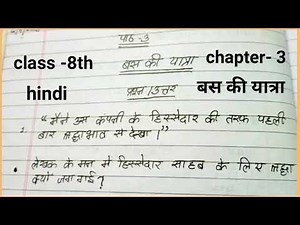 पाठ-3
class -8th बस की यात्रा chapter- 3
hindi प्रश्न/उत्तर बस की यात्रा
1. "मैंने उस कंपनी के हिस्सेदार की तरफ पहली
बार श्रद्धाभाव से देखा।"
• लेखक के मन में हिस्सेदार साहब के लिए श्रद्धा
क्यों जग गई?